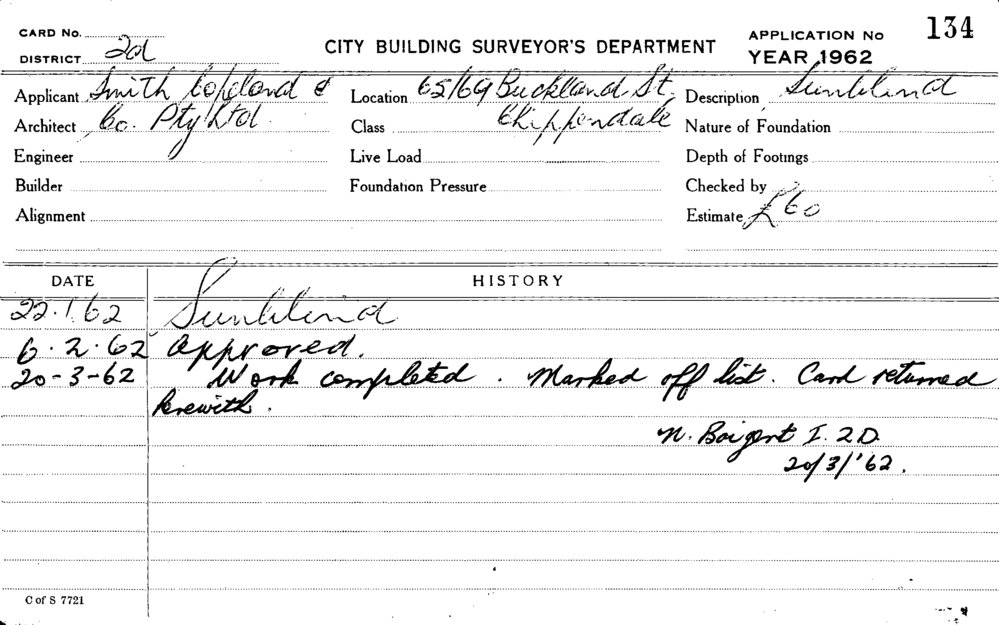 CARD No.
DISTRICT 2d
CITY BUILDING SURVEYOR'S DEPARTMENT
APPLICATION No 134
YEAR 1962
Applicant Smith Copeland &
Architect Co. Pty Ltd.
Engineer
Builder
Alignment
Location 65/69 Buckland St.
Class Chippendale
Live Load
Foundation Pressure
Description Sunblind
Nature of Foundation
Depth of Footings
Checked by
Estimate £60
DATE HISTORY
22.1.62 Sunblind
6.2.62 Approved.
20-3-62 Work completed. Marked off list. Card returned
herewith.
N. I. 2D.
20/3/'62.
C of S 7721